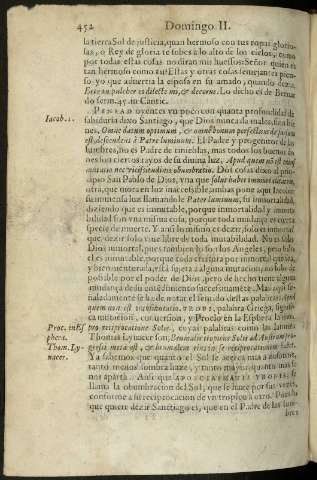 452 Domingo II.
la tierra Sol de justicia, quan hermoso con tus ropas glorio-
sas, o Rey de gloria te subes à lo alto de los cielos, como
por todas estas cosas no diran mis huessos: Señor quien es
tan hermoso como tu? Estas y otras cosas semejantes pien-
so yo que advertia la esposa en su amado, quando dezia.
Ecce tu pulcher es dilecte mi, & decorus. Lo dicho es de Bernar
do serm. 45. in Cantic.
PENSAD oyentes un poco con quanta profundidad de
Iacob. 1.
sabiduria dixo Santiago, que Dios nunca da males, sino bie
nes, Omne datum optimum, & omne donum perfectum de sursum
est, descendens à Patre luminum. El Padre y progenitor de las
lumbres, no es Padre de tinieblas, mas todos los buenos bie
nes son ciertos rayos de su divina luz. Apud quem nō est
nec vicissitudinis obumbratio. Dos cosas dixo el prin
cipio San Pablo de Dios,
que mora en luz inaccessible, ambas pone aqui Iacob:
su inmensa luz llamandole Pater luminum, su inmortalidad,
diziendo que es inmutable, porque inmortalidad y inmuta
bilidad son una misma cosa, porque toda mudança es cierta
specie de muerte. Y assi lo mismo es dezir, solo es inmortal
que dezir solo vive libre de toda mutabilidad. No es solo
Dios inmortal, pues tambien lo son los Angeles, pero solo
el es inmutable, porque toda criatura por inmortal que sea,
y bienaventurada, està sujeta a alguna mutacion, no solo de
possible por el poder de Dios, pero de hecho tiene alguna
mudança de su entendimiento successivamēte. Mas aqui se-
ñaladamente se ha de notar el sentido destas palabras: Apud
quem non est transmutatio. TROPE, palabra Griega, signifi-
ca mutacion, conversion, y Proclo en la Esphera llama
Proc. in Es
phera.
pro reciprocatione Solis, cuyas palabras como las
Thom. Ly-
nacer.
Thomas Lynacer son,
Ya sabemos que quanto el Sol se acerca mas a nosotros,
tanto menos sombra haze, y tanto mayor quanto mas se
nos aparta. Assi que APOSCIASMATIS TROPIS, se
llama la obumbracion del Sol, que se haze por sus vezes,
conforme a su reciprocacion de un tropico a otro. Pues lo
que quiere dezir Santiago es, que en el Padre de las lum-
bres